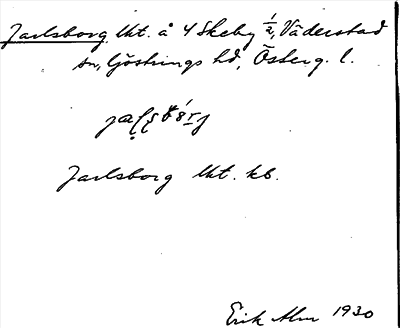 Jarlsborg lht. å 4 Skeby 1/2, Väderstad
sn, Göstrings hd, Österg. l.
Jarlsborg lht. kb.
Erik Alm 1930